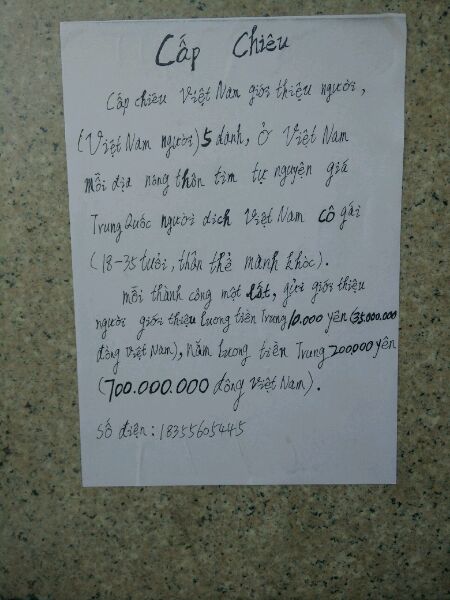 Cấp Chiêu
Cấp chiêu Việt Nam giới thiệu người,
(Việt Nam người) 5 danh, Ở Việt Nam
mỗi địa nông thôn tìm tự nguyện giá
Trung Quốc người dich Việt Nam cô gái
(18-35 tuổi, thân thể mạnh khỏc).
mỗi thành công một lất, gửi giới thiệu
người giới thiệu lương tiền Trung 10.000 yên (35.000.000
đồng Việt Nam), năm lương tiền Trung 200000 yên
(700.000.000 đồng Việt Nam).
Số điện: 18355605445